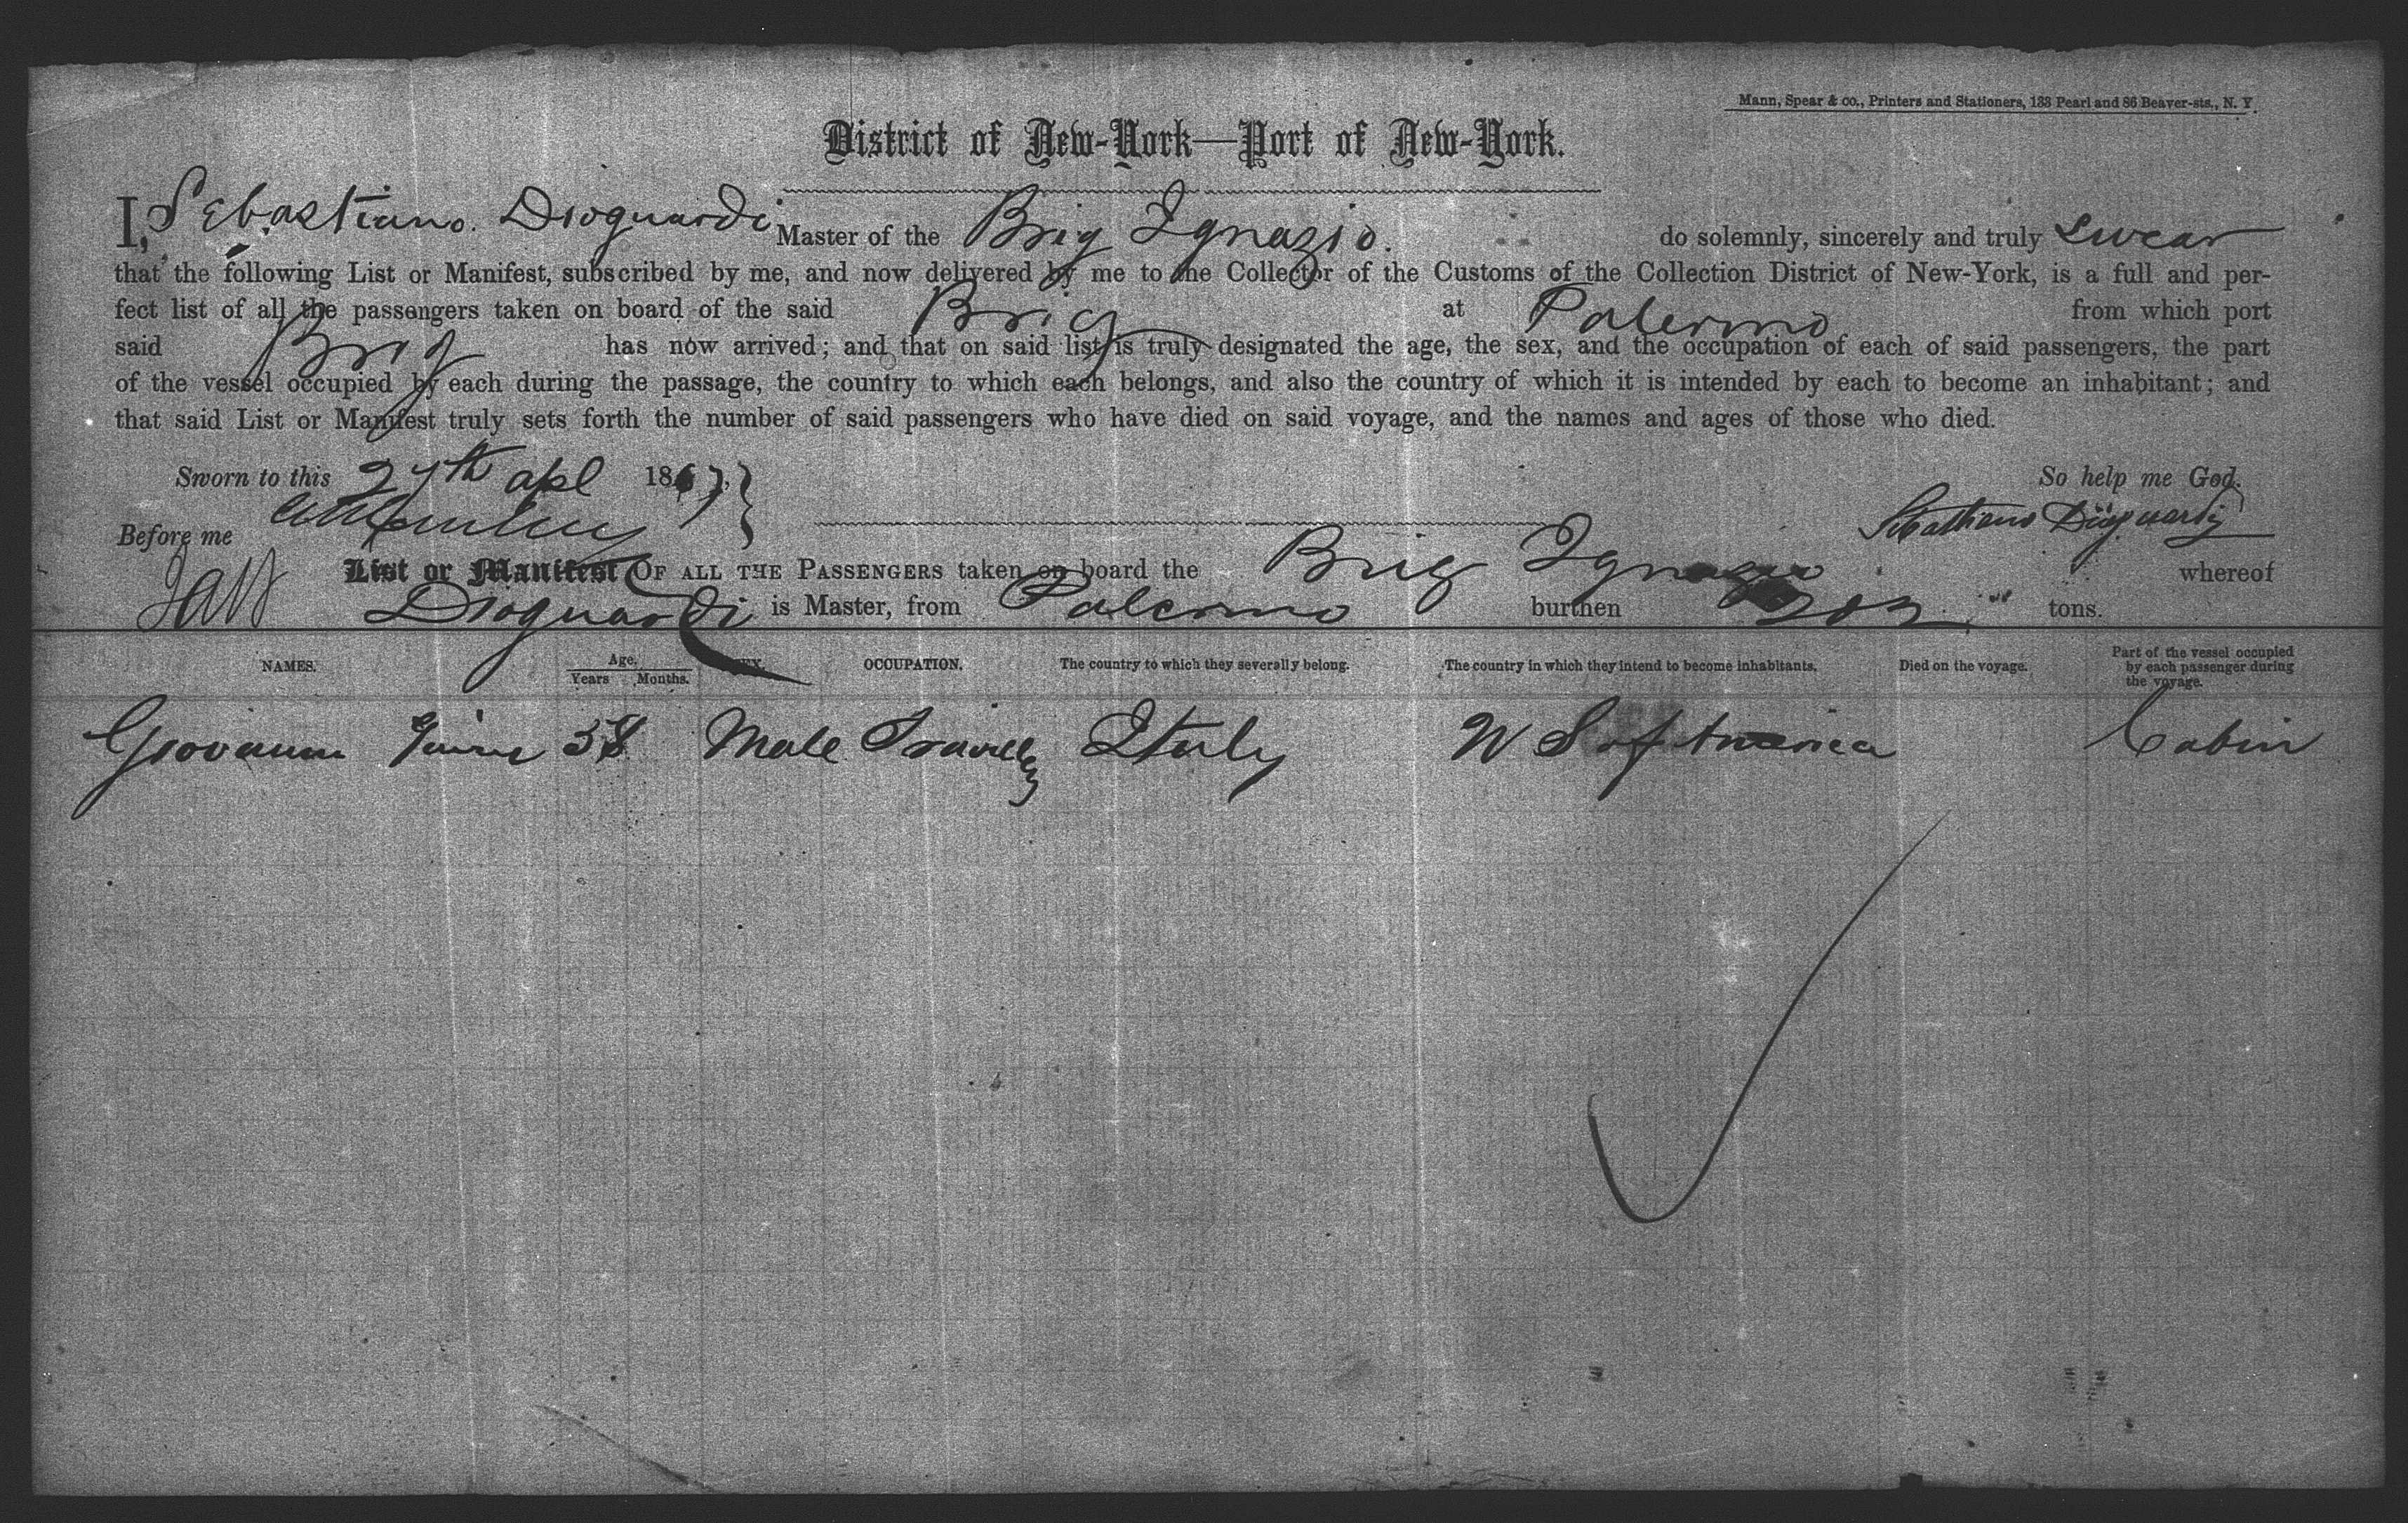 Mann, Spear & co., Printers and Stationers, 133 Pearl and 86 Beaver-sts., N. Y.
District of New-York—Port of New-York.
I, Sebastiano Dioguardi Master of the Brig Ignazio. do solemnly, sincerely and truly swear
that the following List or Manifest, subscribed by me, and now delivered by me to the Collector of the Customs of the Collection District of New-York, is a full and per-
fect list of all the passengers taken on board of the said Brig at Palermo from which port
said Brig has now arrived; and that on said list is truly designated the age, the sex, and the occupation of each of said passengers, the part
of the vessel occupied by each during the passage, the country to which each belongs, and also the country of which it is intended by each to become an inhabitant; and
that said List or Manifest truly sets forth the number of said passengers who have died on said voyage, and the names and ages of those who died.
Sworn to this 27th apl 1867, So help me God.
Before me Sebastiano Dioguardi
List or Manifest OF ALL THE PASSENGERS taken on board the Brig Ignazio whereof
Dioguardi is Master, from Palermo burthen 202 tons.
NAMES. Age, Years Months. SEX. OCCUPATION. The country to which they severally belong. The country in which they intend to become inhabitants. Died on the voyage. Part of the vessel occupied by each passenger during the voyage.
Giovanni 38 Male Italy U S of America Cabin